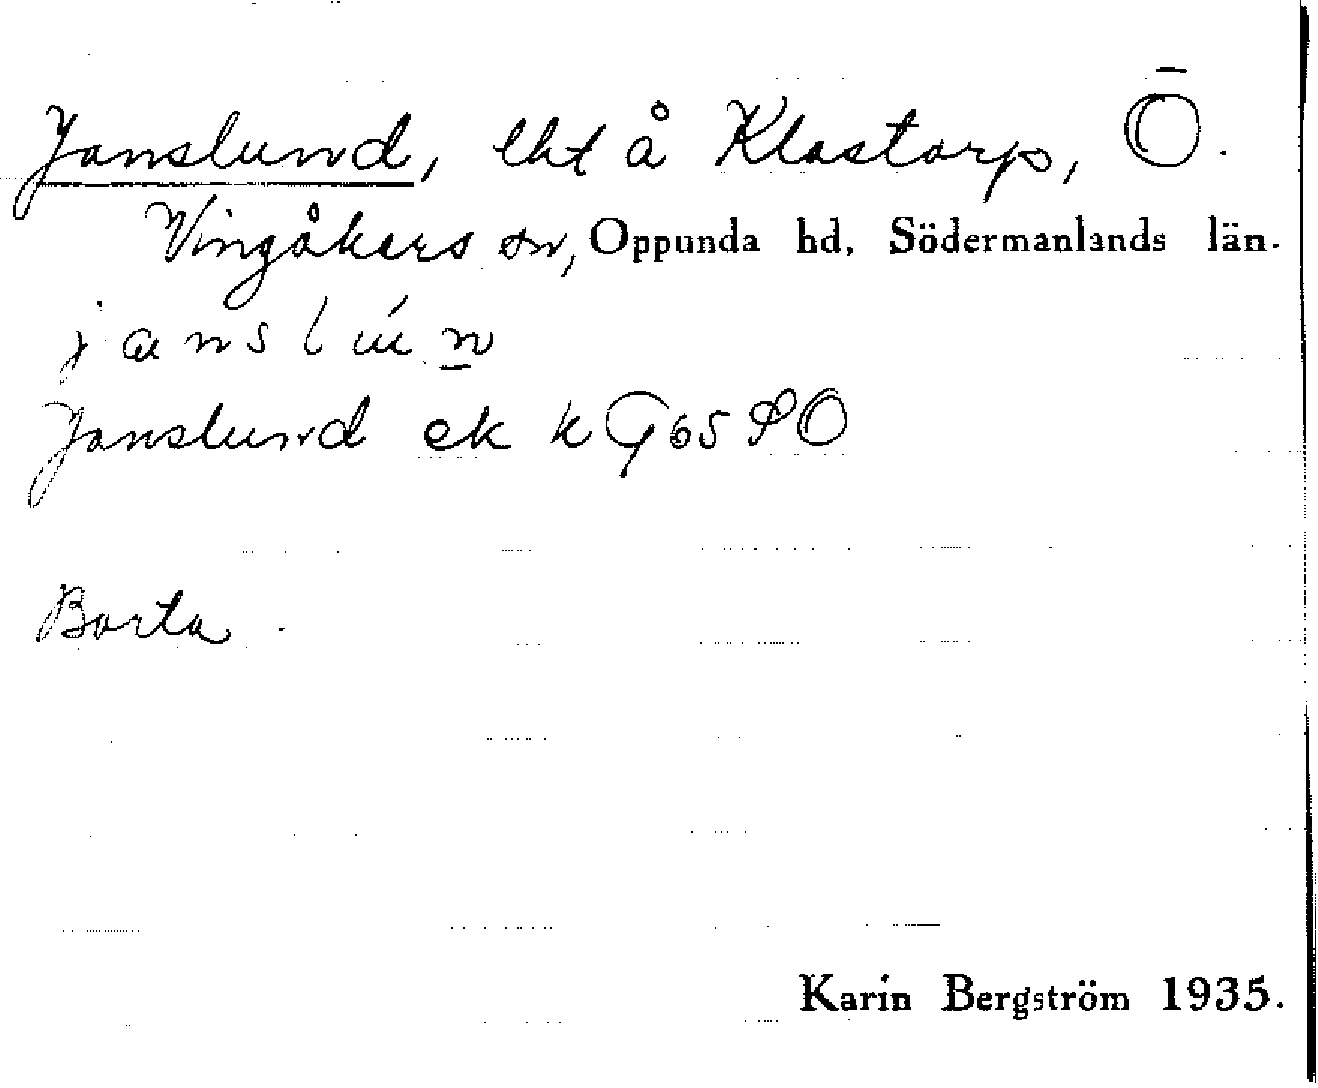 Janslund, lht å Klastorp, Ö.
Vingåkers sn, Oppunda hd, Södermanlands län.
janslún
Janslund ek k G 65 SO
Borta.
Karin Bergström 1935.